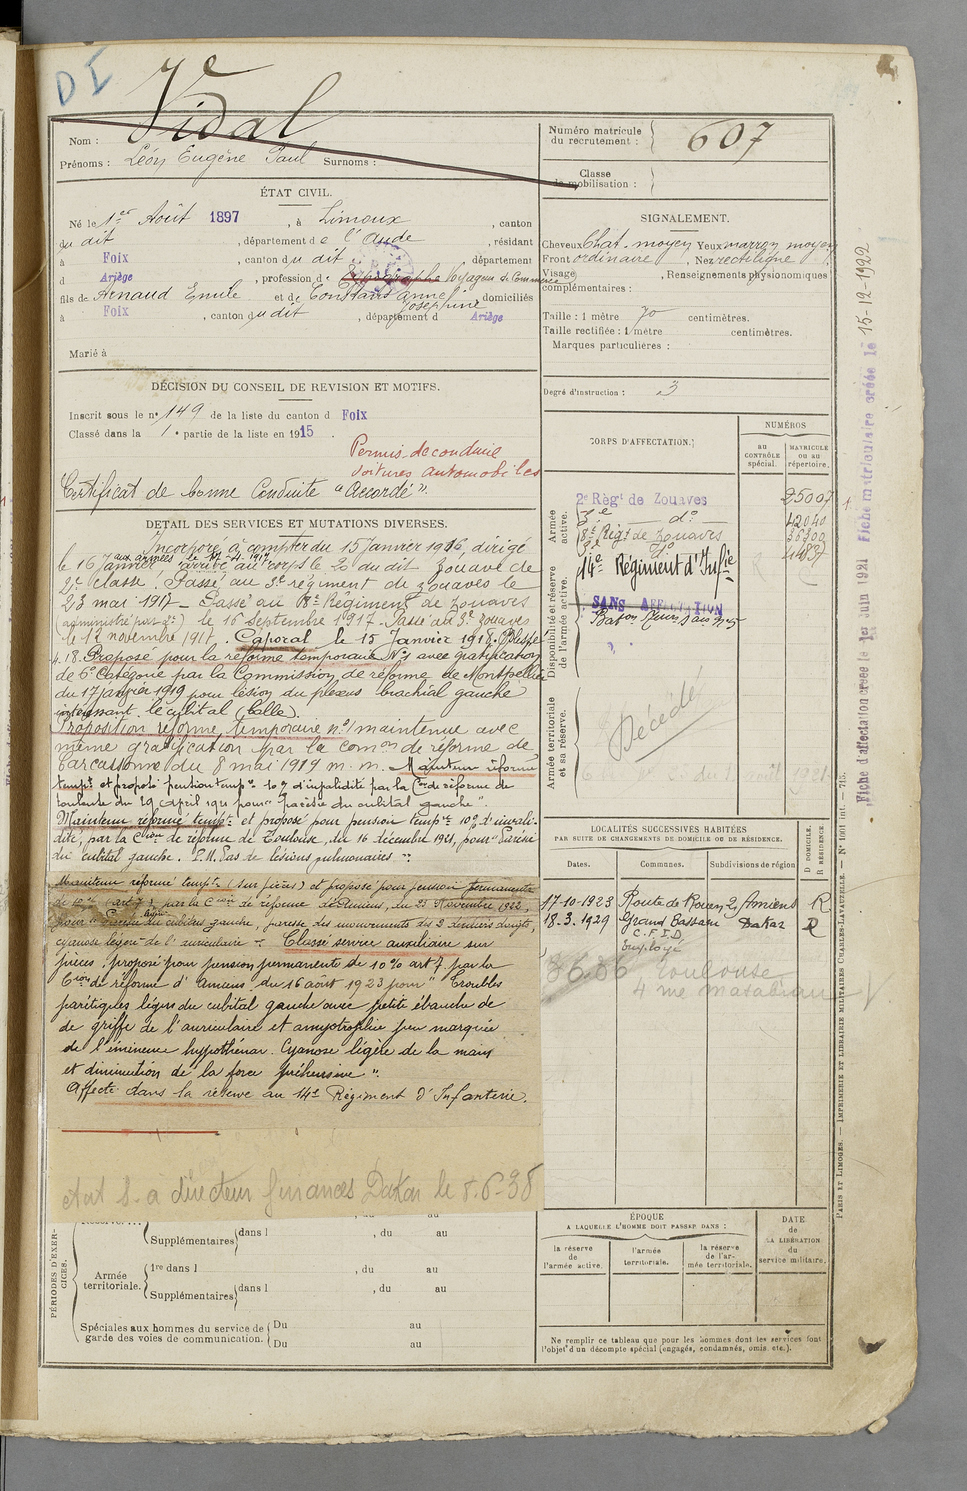 DI
7e
Vidal
Nom :
Prénoms : Léon Eugène Paul Surnoms :
Numéro matricule du recrutement : 607
Classe de mobilisation :
ÉTAT CIVIL.
Né le 1er Août 1897, à Limoux, canton
du dit, département de l'Aude, résidant
à Foix, canton du dit, département
d Ariège, profession de Voyageur de Commerce
fils de Arnaud Emile et de Constans Anne Josephine, domiciliés
à Foix, canton du dit, département d Ariège
Marié à
SIGNALEMENT.
Cheveux Chat. moyen Yeux marron moyen
Front ordinaire, Nez rectiligne
Visage, Renseignements physionomiques
complémentaires :
Taille : 1 mètre 70 centimètres.
Taille rectifiée : 1 mètre centimètres.
Marques particulières :
Degré d'instruction : 3
DÉCISION DU CONSEIL DE REVISION ET MOTIFS.
Inscrit sous le n° 149 de la liste du canton d Foix
Classé dans la 1e partie de la liste en 1915.
Permis de conduire
voitures automobiles
Certificat de bonne Conduite "Accordé".
DETAIL DES SERVICES ET MUTATIONS DIVERSES.
Incorporé à compter du 15 Janvier 1916, dirigé
aux armées le 17-4-1917
le 16 Janvier arrivé au corps le 2 du dit Zouave de
2e classe. Passé au 3e régiment de Zouaves le
23 mai 1917 - Passé au 8e Régiment de Zouaves
(administré par 2e) le 16 Septembre 1917. Passé au 3e Zouaves
le 12 novembre 1917. Caporal le 15 Janvier 1918. Blessé
4.18. Proposé pour la réforme temporaire N°1 avec gratification
de 6e Catégorie par la Commission de réforme de Montpellier
du 17 janvier 1919 pour lésion du plexus brachial gauche
intéressant le cubital (balle).
Proposition réforme temporaire n°1 maintenue avec
même gratification par la comon de réforme de
Carcassonne du 8 mai 1919 m. m. Maintenu réformé
tempre et proposé pension tempre 10 % d'invalidité par la Con de réforme de
Toulouse du 29 april 1921 pour "parésie du cubital gauche".
Maintenu réformé tempre et proposé pour pension tempre 10% d'invali-
dité, par la Cion de réforme de Toulouse, du 16 décembre 1921, pour "Parésie
du cubital gauche. P.M. Pas de lésions pulmonaires".
Maintenu réformé tempre (sur pièces) et proposé pour pension permanente
de 10% (art 7), par la Cion de réforme d'Amiens, du 23 Novembre 1922,
pour "Parésie légère du cubital gauche, paresse des mouvements des 2 derniers doigts,
cyanose légère de l'auriculaire". Classé service auxiliaire sur
pièces, proposé pour pension permanente de 10% art 7. par la
Cion de réforme d'Amiens du 16 août 1923 pour "Troubles
parétiques légers du cubital gauche avec petite ébauche de
de griffe de l'auriculaire et amyotrophie peu marquée
de l'éminence hypothénar. Cyanose légère de la main
et diminution de la force préhensive".
Affecté dans la réserve au 14e Régiment d'Infanterie.
directeur finances Dakar le 8.6-38
CORPS D'AFFECTATION.
NUMÉROS
au contrôle spécial.
MATRICULE ou au répertoire.
Armée active.
2e Régt de Zouaves 25007
3e do 42040
8e Régt de Zouaves 36300
3e do
Disponibilité et réserve de l'armée active.
14e Régiment d'Infie
SANS AFFECTATION
Armée territoriale et sa réserve.
Décédé
LOCALITÉS SUCCESSIVES HABITÉES
PAR SUITE DE CHANGEMENTS DE DOMICILE OU DE RÉSIDENCE.
D DOMICILE. R RÉSIDENCE.
Dates. Communes. Subdivisions de région
17-10-1923 Route de Rouen 2, Amiens R
18.3.1929 Grand Bassam Dakar R
C.F.I.D
Employé
3636 Toulouse
4 rue Matabiau
ÉPOQUE
A LAQUELLE L'HOMME DOIT PASSER DANS :
la réserve de l'armée active.
l'armée territoriale.
la réserve de l'armée territoriale.
DATE de LA LIBÉRATION du service militaire.
Ne remplir ce tableau que pour les hommes dont les services font
l'objet d'un décompte spécial (engagés, condamnés, omis, etc.).
PÉRIODES D'EXERCICES.
Supplémentaires dans l, du au
Armée territoriale.
1re dans l, du au
Supplémentaires dans l, du au
Spéciales aux hommes du service de garde des voies de communication.
Du au
Du au
Fiche d'affectation créée le 1er Juin 1921 Fiche matriculaire créée le 15-12-1922
PARIS ET LIMOGES. — IMPRIMERIE ET LIBRAIRIE MILITAIRES CHARLES-LAVAUZELLE. — N° 1001 int. — 715.